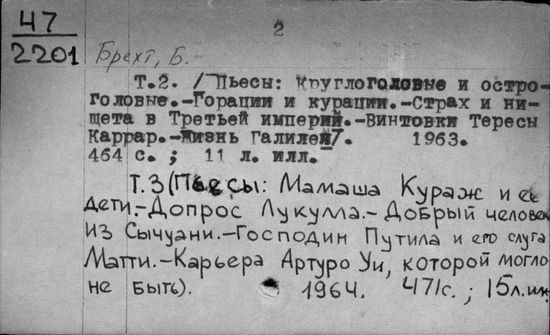 47
2201
2
Брехт, Б.
Т.2. /Пьесы: Круглоголовые и остро-
головые.-Горации и курации.-Страх и ни-
щета в Третьей империй.-Винтовки Тересы
Каррар.-Жизнь Галилей/. 1963.
464 с. ; 11 л. илл.
Т.3 (Пьесы: Мамаша Кураж и ее
дети.-Допрос Лукулла.-Добрый человек
из Сычуани.-Господин Путила и его слуга
Матти.-Карьера Артуро Уи, которой могло
не быть). 1964. 471с. ; 15л.ил